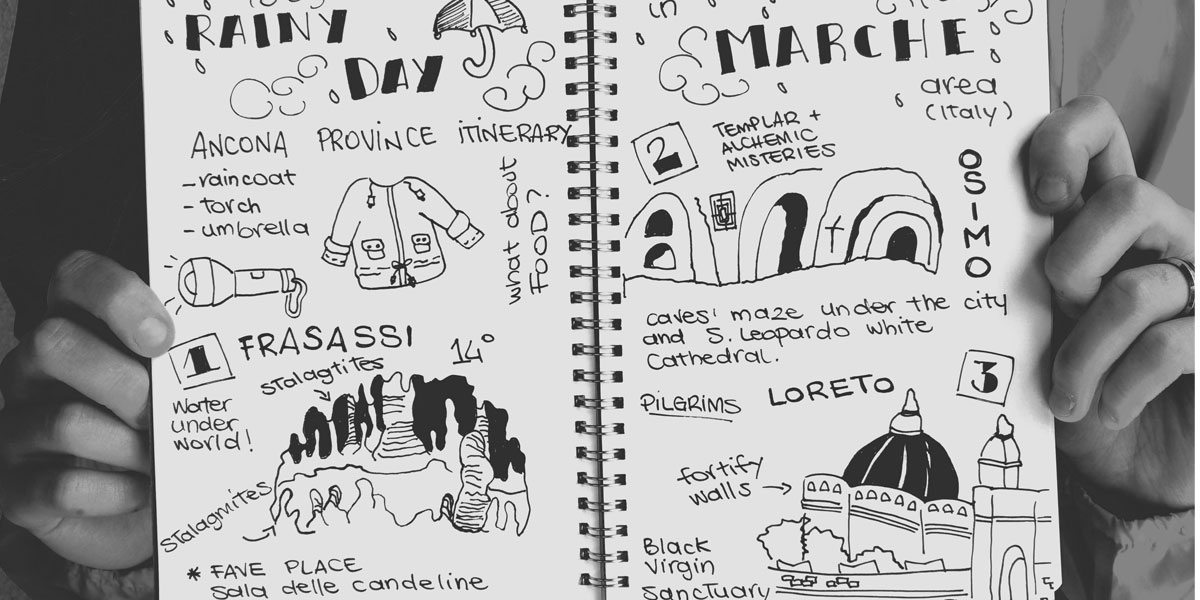 RAINY
DAY
ANCONA PROVINCE ITINERARY
- raincoat
- torch
- umbrella
what about
FOOD?
1 FRASASSI
stalagtites
14°
Water
under
world!
stalagmites
* FAVE PLACE
sala delle candeline
in
MARCHE
area
(Italy)
2
TEMPLAR +
ALCHEMIC
MISTERIES
OSIMO
caves' maze under the city
and S. Leopardo white
Cathedral.
PILGRIMS
LORETO
3
fortify
walls
Black
Virgin
sanctuary